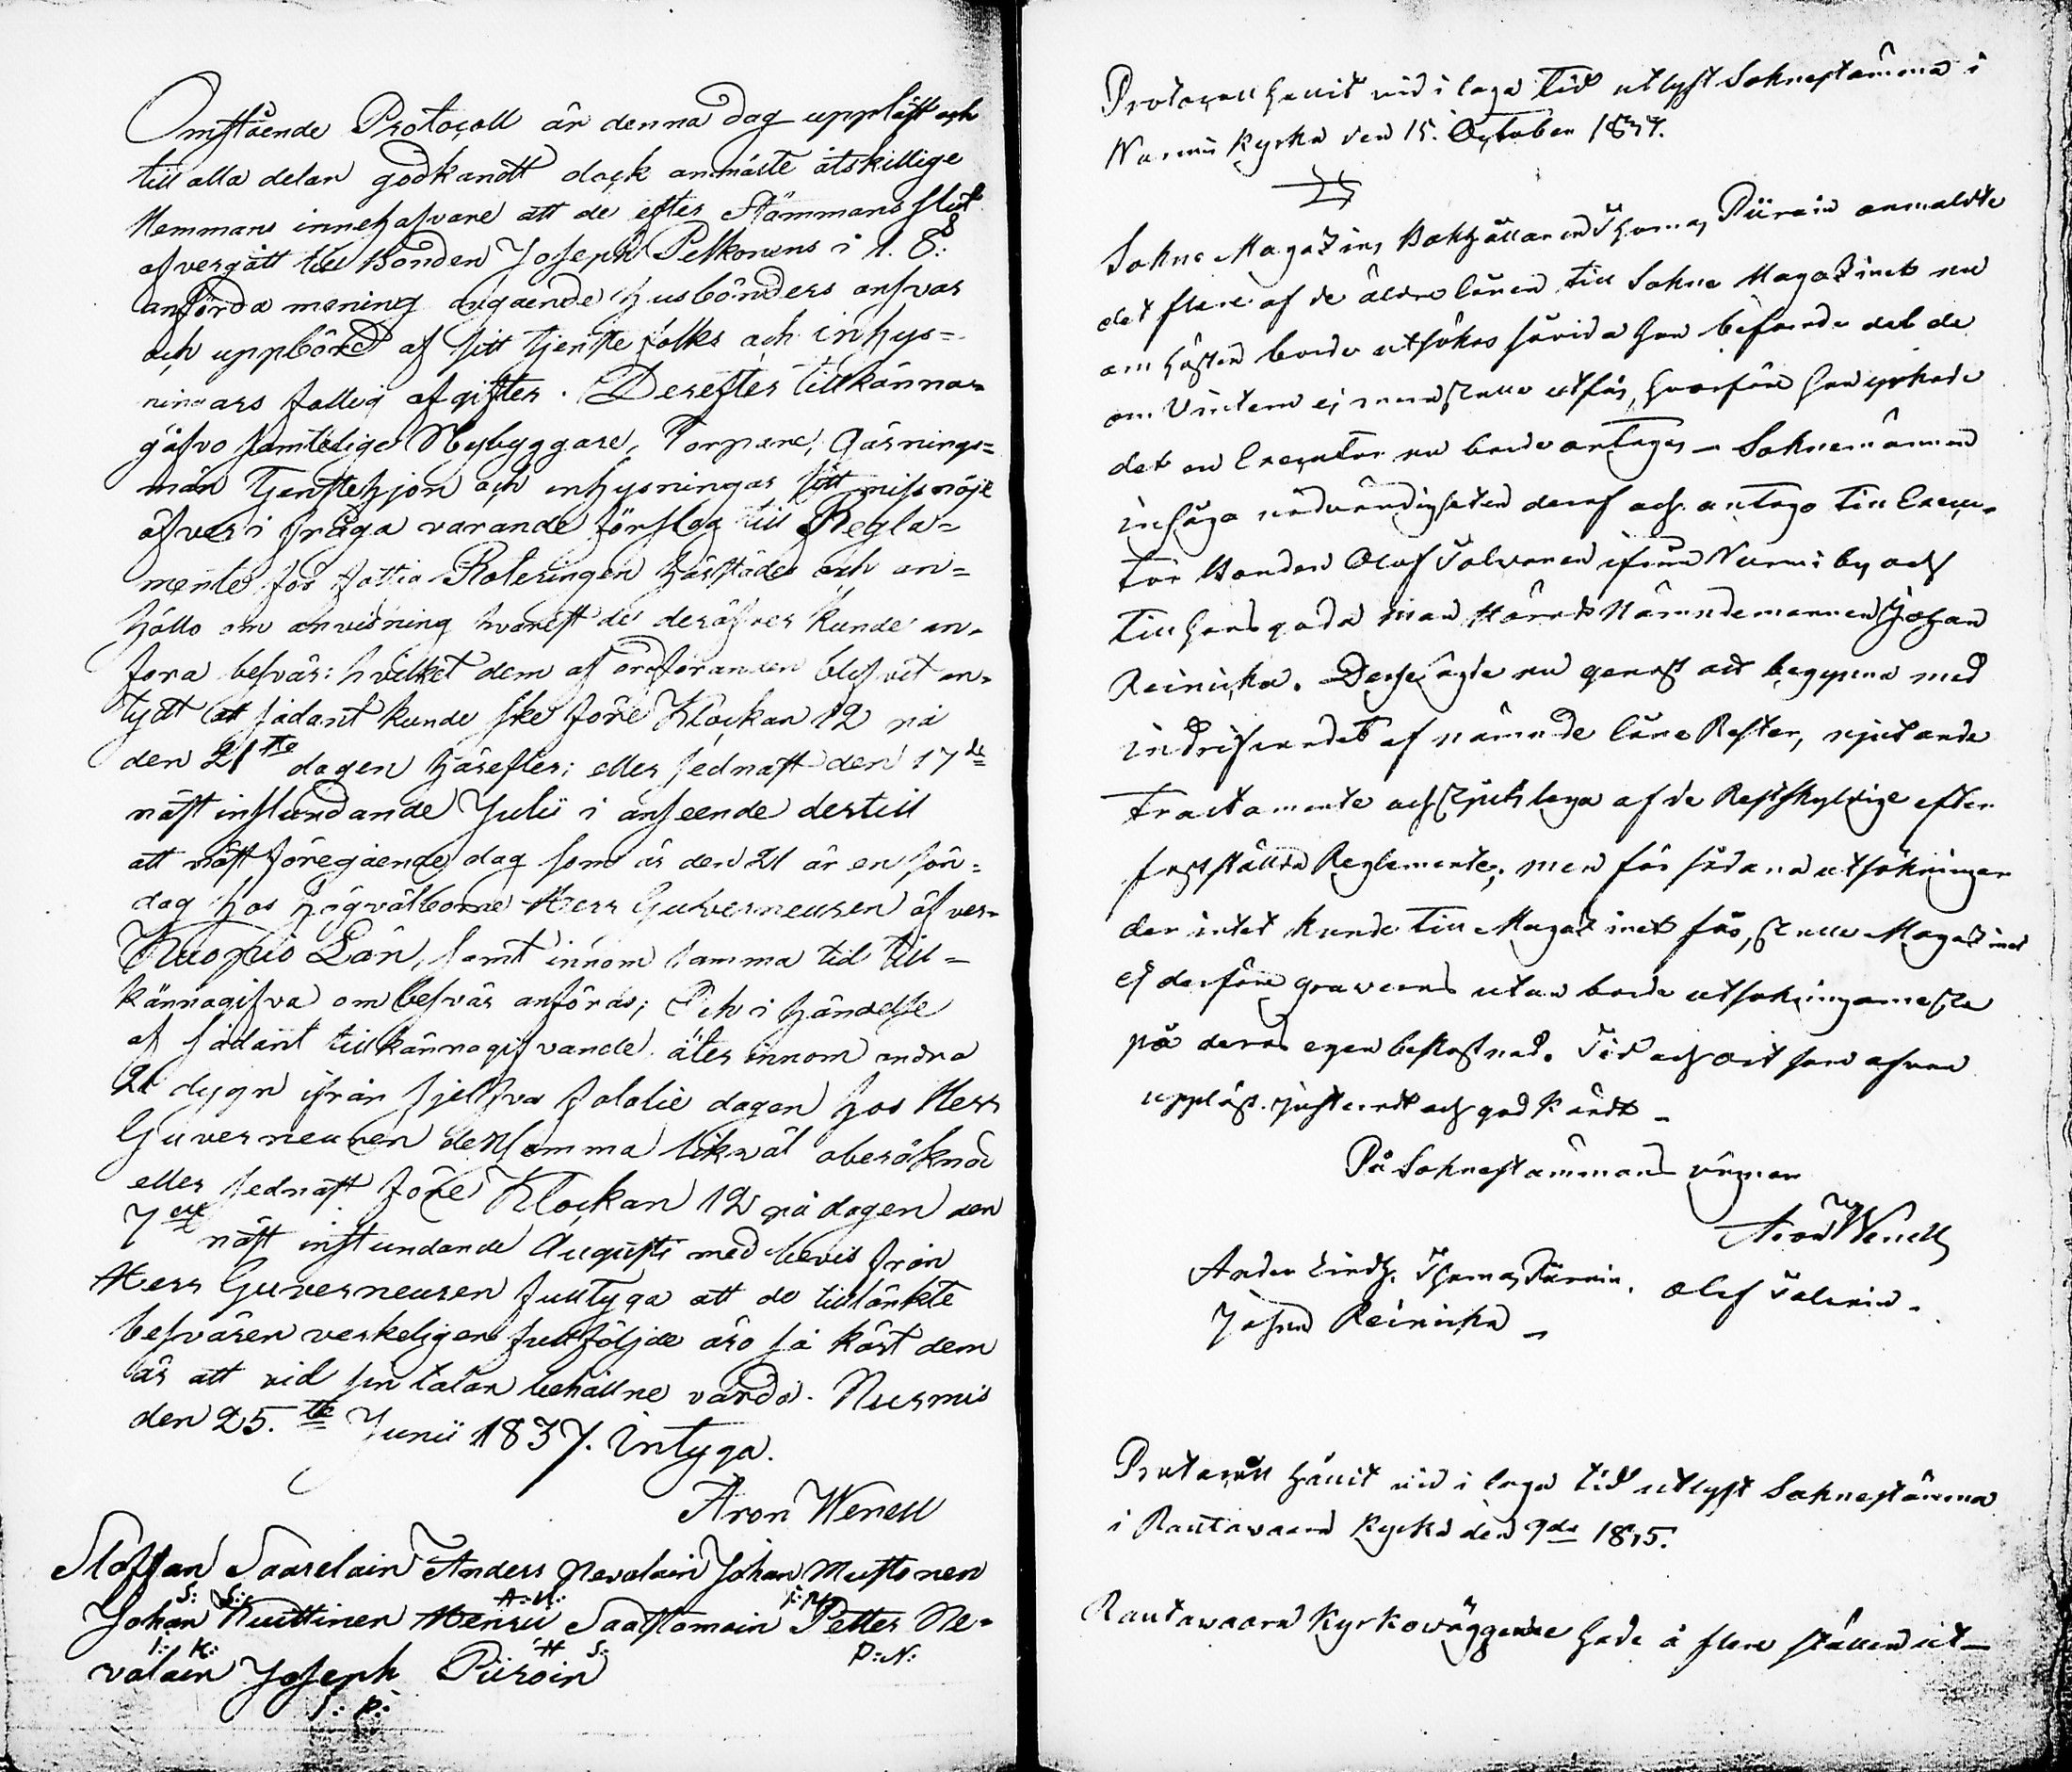 Omstående Protocoll är denna dag uppläst och
till alla delar godkändt dock anmälte åtskillige
Hemmans innehafvare att de efter Stämmans slut
öfvergått till Bonden Joseph Pelkonens i 1. §:
anförda mening angående husbönders ansvar
och uppbörd af sitt tjenste folks och inhys-
ningars fattig afgifter. Derefter tillkänna-
gåfvo samtelige Nybyggare, Torpare, Gärnings-
män Tjenstehjon och inhysningar sitt missnöje
öfver i fråga varande förslag till Regla-
mente för fattig Roteringen härstädes och an-
höllo om anvisning hvarest de deröfver kunde an-
föra besvär: hvilket dem af ordföranden blifvit an-
tydt att sådant kunde ske före Klockan 12 på
den 21te dagen härefter; eller sednast den 17de
näst instundande Julii i anseende dertill
att näst föregående dag som är den 21 är en sön-
dag hos högvälborne Herr Guverneuren öfver
Kuopio Län, samt innom samma tid till-
kännagifva om besvär anföras; Och i händelse
af sådant tillkännagifvande åter innom andra
21 dygn ifrån sjelfva fatalie dagen hos Herr
Guverneuren densamma likväl oberäknad
eller sednast före Klockan 12 på dagen den
7de näst instundande Augusti med bevis från
Herr Guverneuren fulltyga att de tilltänkte
besvären verkeligen fullföljde äro så kärt dem
är att vid sin talan behållne varda. Nurmis
den 25.te Junii 1837. Intyga.
Aron Wenell
Staffan Saarelain Anders Nevalain Johan Mustonen
S: S: A: N: J: M:
Johan Kuittinen Henric Saastomoin Petter Ne-
J: K: H S: P: N:
valain Joseph Piiroin
J: P:
Protocoll hållit vid i laga Tid utlyst Sokenstämma i
Nurmis Kyrka den 15. October 1837.
Sokne Magazins Bokhållaren Thomas Piiroin anmälde
det flere af de äldre lånen till Sokne Magazinet nu
om hösten borde utsökas såvida han befarade det de
om Vintern ej mera skulle utfås, hvarföre han yrkade
det en Executor nu borde antagas — Soknemännen
insågo nödvändigheten deraf och antogo till Execu-
tor Bonden Olof Tolvanen ifrån Nurmis by och
till hans goda man Härads Nämndemannen Johan
Reinicka. Desse ägde nu genast att begynna med
indrifvandet af nämnde låne Rester, njutande
Tractamente och Skjutslega af de Restskyldige efter
fastställda Reglemente; men för sådana utsökningar
der intet kunde till Magazinet fås, skulle Magazinet
ej derföre graveras utan borde utsökningarne ske
på deras egen bekostnad. Tid och ort som ofvan
uppläst, justeradt och godkändt —
På Soknestämmans vägnar
Aron Wenell
Anders Lindh. Thomas Piiroin. Olof Tolvanin.
Johan Reinicka —
Protocoll hållit vid i laga tid utlyst Soknestämma
i Rautavaara Kyrka den 9de 1835.
Rautavaara Kyrkoväggarne hade å flere ställen ut-